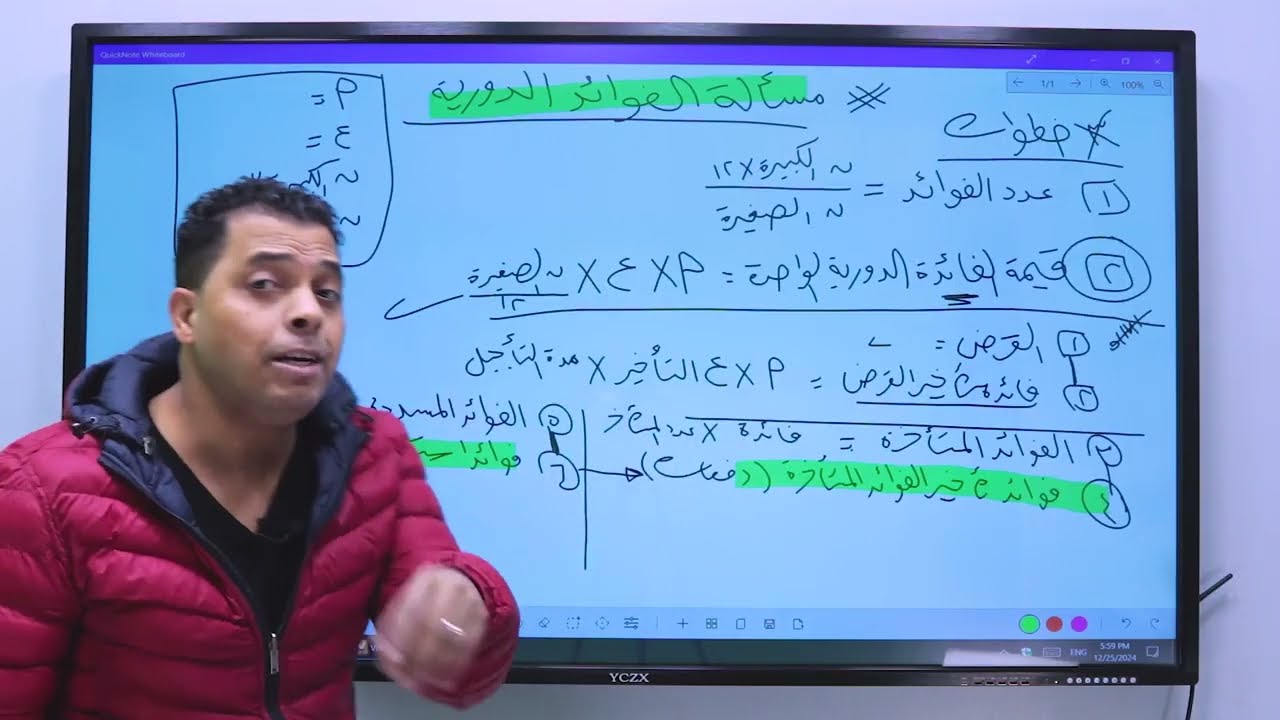 QuickNote Whiteboard
1/1 100%
* مسألة الفوائد الدورية
م =
ع =
* خطوات
١ عدد الفوائد = ن الكبيرة × ١٢
ن الصغيرة
٢ قيمة الفائدة الدورية الواحدة = م × ع × ن الصغيرة
١٢
١ القرض =
٢ فائدة تأخير القرض = م × ع التأخير × مدة التأجيل
٣ الفوائد المتأخرة = فائدة × عدد
٤ فوائد تأخير الفوائد المتأخرة (دفعات)
٥ الفوائد
٦ فوائد
ENG 5:59 PM
12/25/2024
YCZX